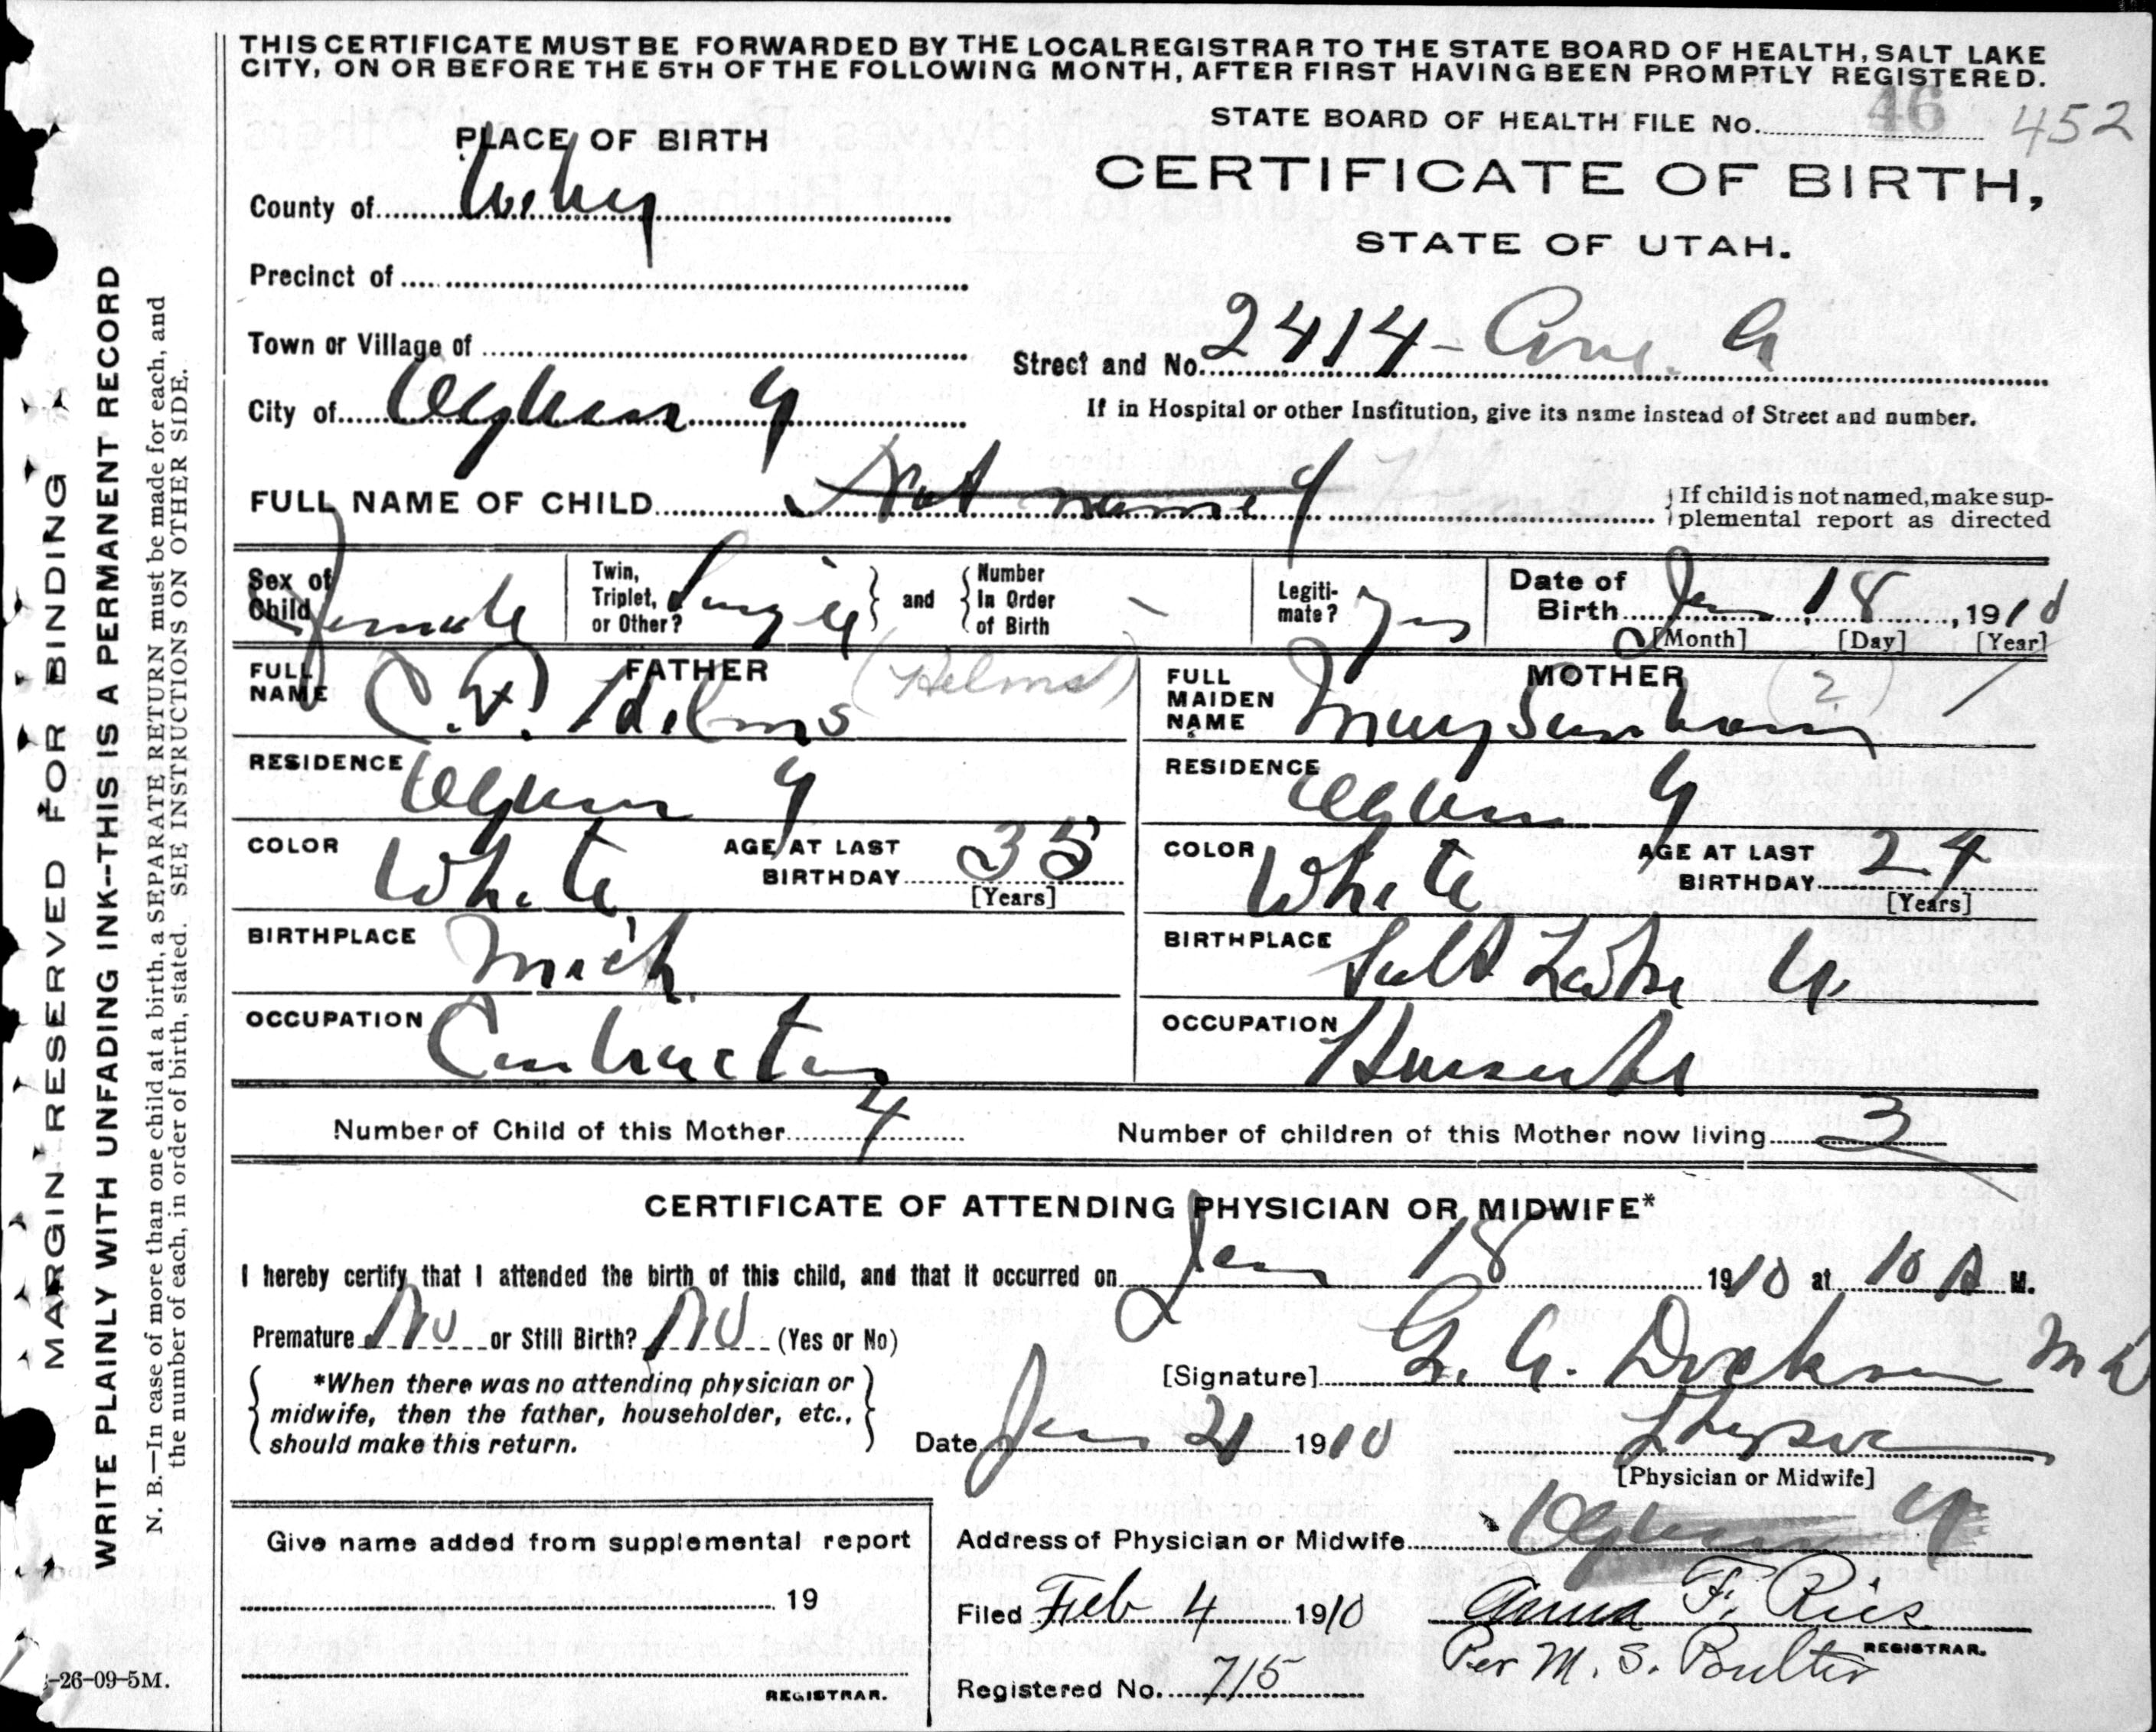 THIS CERTIFICATE MUST BE FORWARDED BY THE LOCAL REGISTRAR TO THE STATE BOARD OF HEALTH, SALT LAKE
CITY, ON OR BEFORE THE 5TH OF THE FOLLOWING MONTH, AFTER FIRST HAVING BEEN PROMPTLY REGISTERED.
STATE BOARD OF HEALTH FILE No. 46 452
PLACE OF BIRTH
CERTIFICATE OF BIRTH,
STATE OF UTAH.
County of
Precinct of
Town or Village of
Street and No. 2414 - Ave. A
City of Ogden U
If in Hospital or other Institution, give its name instead of Street and number.
FULL NAME OF CHILD Not named
If child is not named, make sup-
plemental report as directed
Sex of Child Female
Twin, Triplet, or Other? Single and Number In Order of Birth -
Legiti-mate? Yes
Date of Birth Jan 18, 1910
[Month] [Day] [Year]
FATHER
FULL NAME C. P. Helms (Helms)
RESIDENCE Ogden U
COLOR White AGE AT LAST BIRTHDAY 35
[Years]
BIRTHPLACE Mich
OCCUPATION Contractor
MOTHER (?)
FULL MAIDEN NAME Mary
RESIDENCE Ogden U
COLOR White AGE AT LAST BIRTHDAY 24
[Years]
BIRTHPLACE Salt Lake U.
OCCUPATION Housewife
Number of Child of this Mother 4
Number of children of this Mother now living 3
CERTIFICATE OF ATTENDING PHYSICIAN OR MIDWIFE*
I hereby certify that I attended the birth of this child, and that it occurred on Jan 18 1910 at 10 A M.
Premature No or Still Birth? No (Yes or No)
*When there was no attending physician or
midwife, then the father, householder, etc.,
should make this return.
[Signature] G. A. Dickson M D
Date Jan 21 1910
[Physician or Midwife]
Address of Physician or Midwife Ogden U
Give name added from supplemental report
19
REGISTRAR.
Filed Feb 4 1910 Anna F. Ries
REGISTRAR.
Per M. S. Poulter
Registered No. 715
MARGIN RESERVED FOR BINDING
WRITE PLAINLY WITH UNFADING INK--THIS IS A PERMANENT RECORD
N. B.—In case of more than one child at a birth, a SEPARATE RETURN must be made for each, and
the number of each, in order of birth, stated. SEE INSTRUCTIONS ON OTHER SIDE.
-26-09-5M.